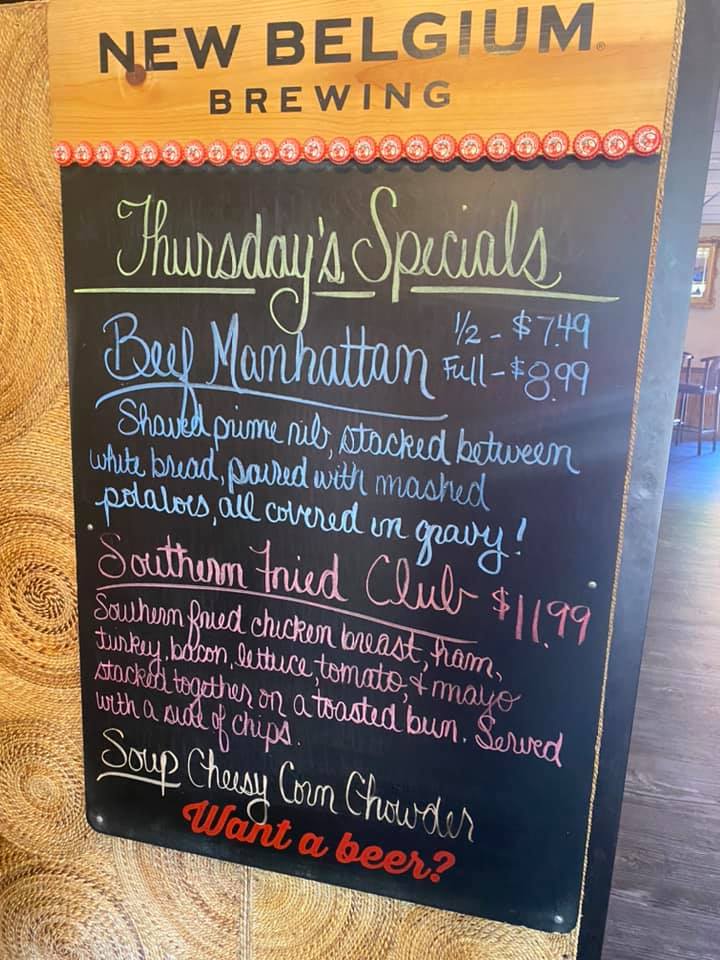 NEW BELGIUM®
BREWING
Thursday's Specials
Beef Manhattan 1/2 - $7.49
Full - $8.99
Shaved prime rib, stacked between
white bread, paired with mashed
potatoes, all covered in gravy!
Southern Fried Club $11.99
Southern fried chicken breast, ham,
turkey, bacon, lettuce, tomato, & mayo
stacked together on a toasted bun. Served
with a side of chips.
Soup Cheesy Corn Chowder
Want a beer?